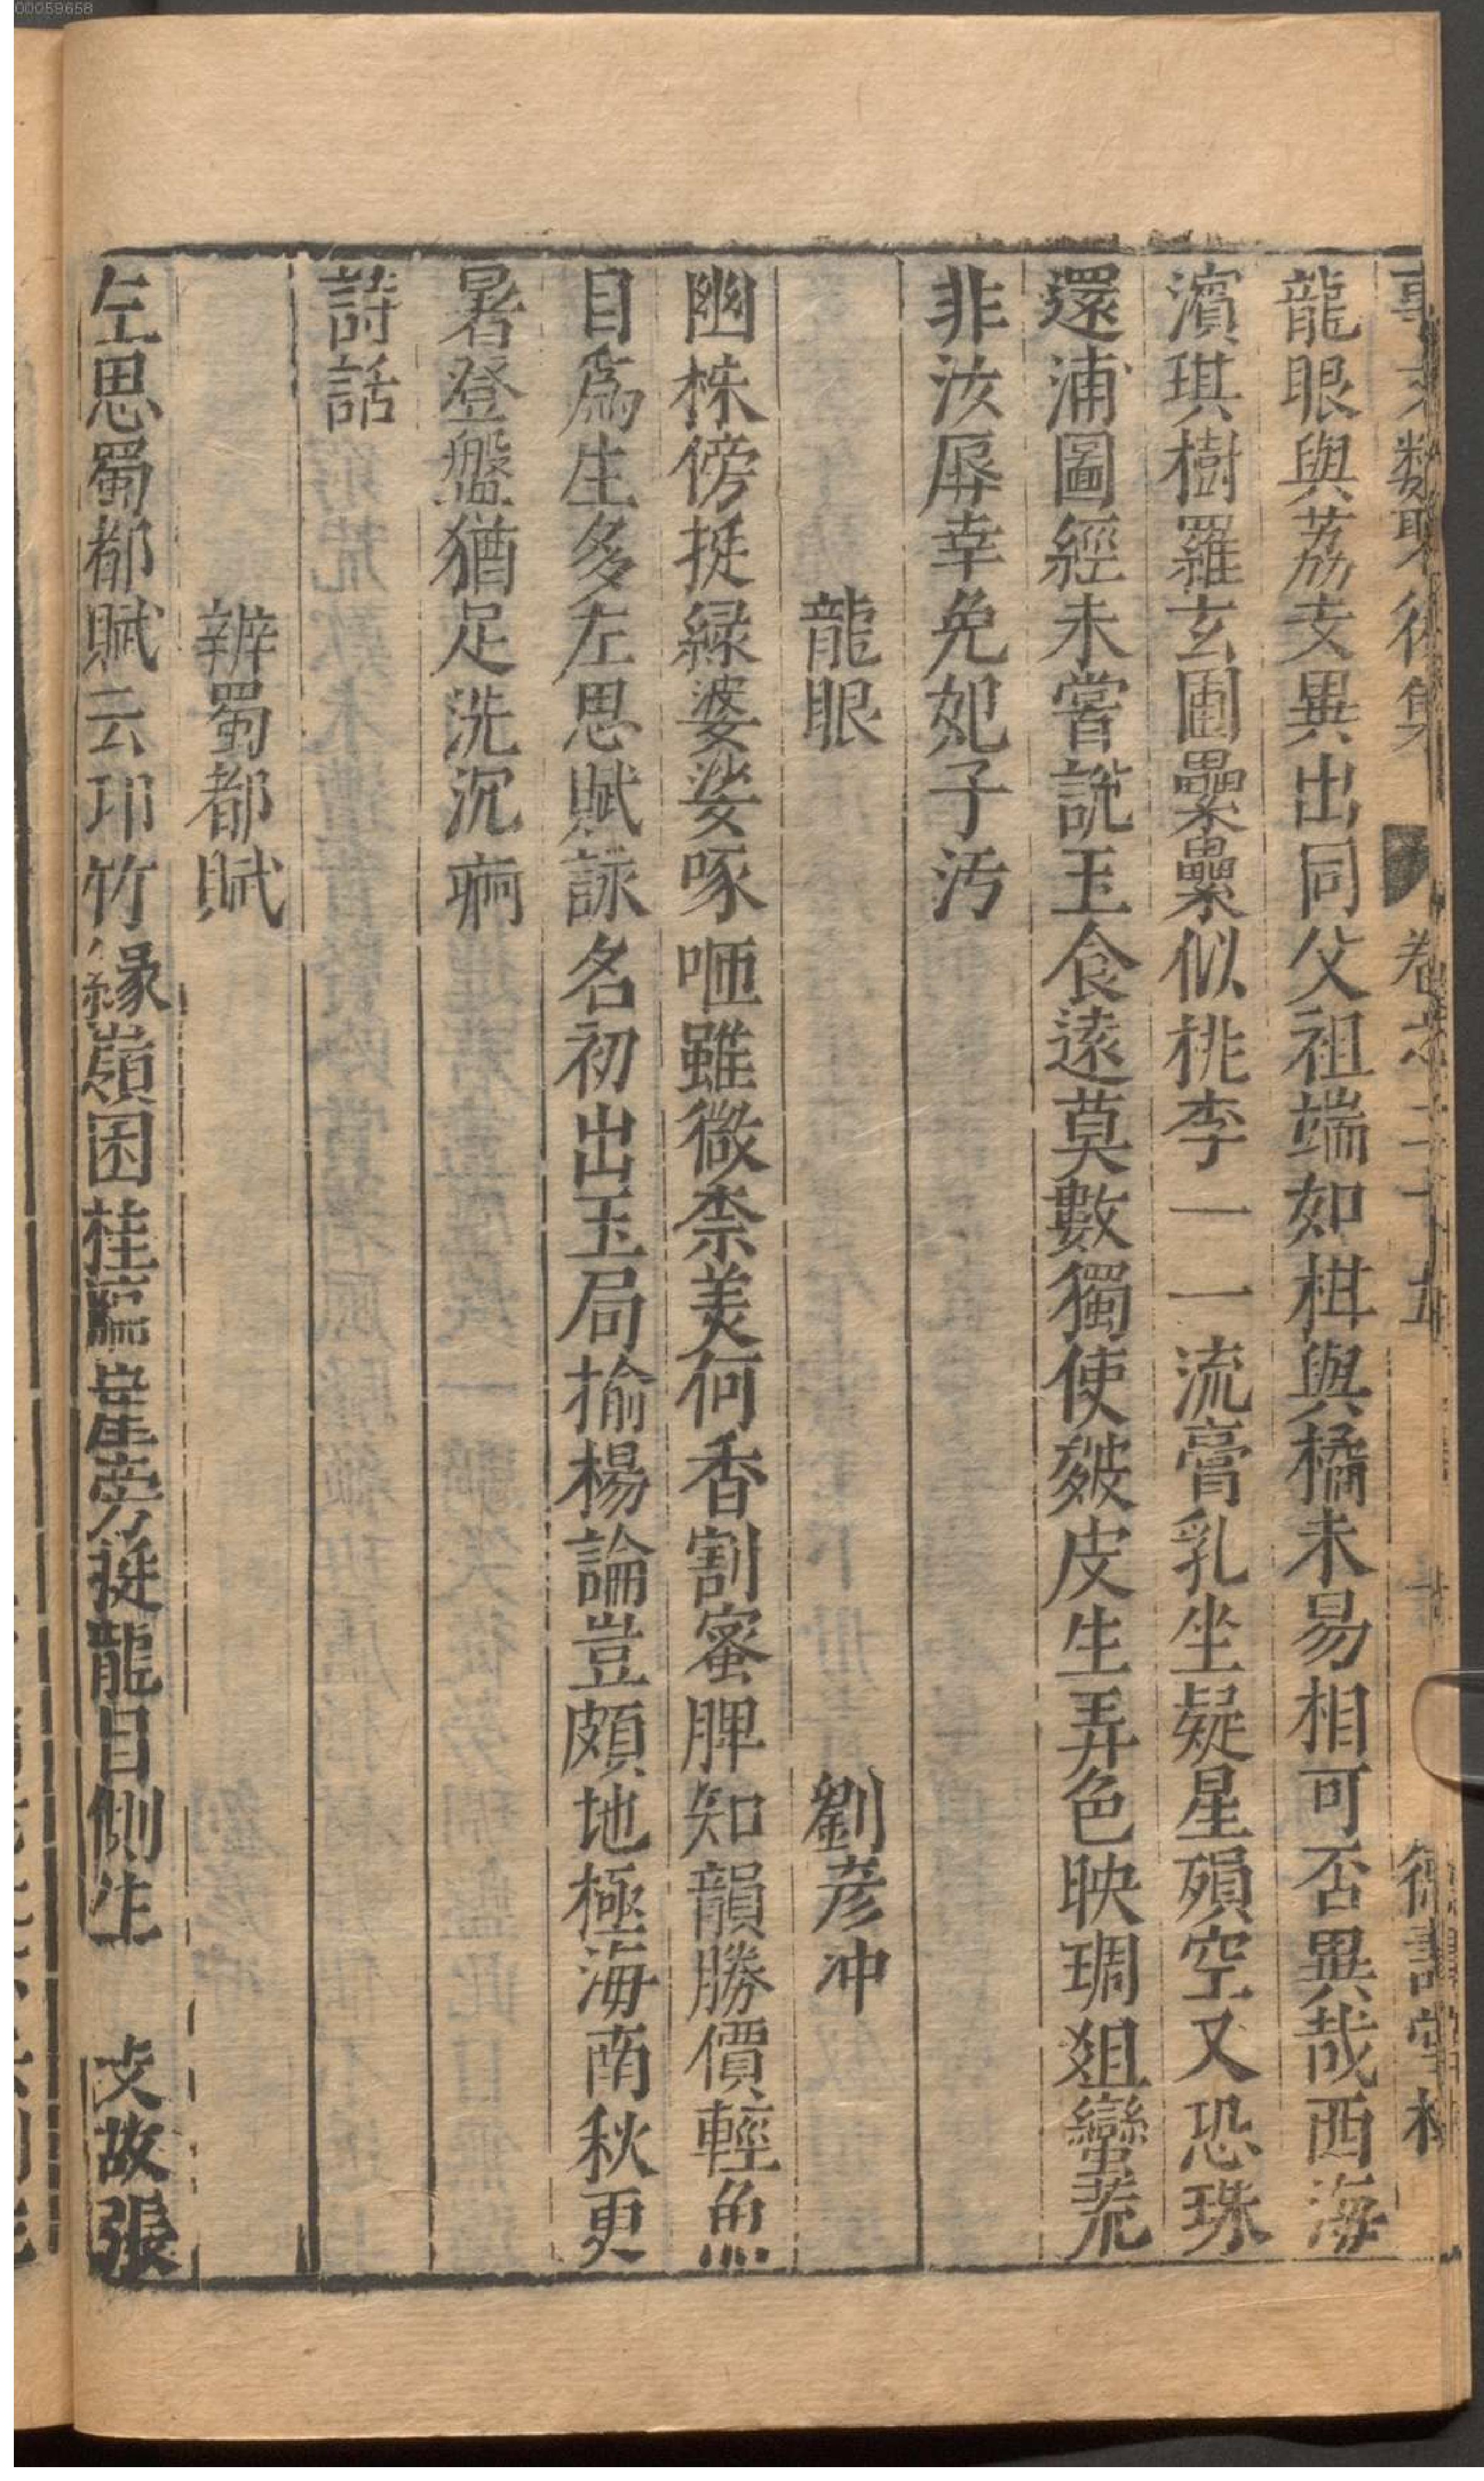 00059658
龍眼與荔支異出同父祖端如柑與橘未易相可否異哉西海
濱琪樹羅玄圃纍纍似桃李一一流膏乳坐疑星殞空又恐珠
還浦圖經未嘗説玉食遠莫數獨使皴皮生弄色映琱俎蠻荒
非汝辱幸免妃子汚
龍眼 劉彦冲
幽株傍挺緑婆娑啄咂雖微柰美何香割蜜脾知韻勝價輕魚
目爲生多左思賦詠名初出玉局揄楊論豈頗地極海南秋更
暑登盤猶足洗沉痾
詩話
辨蜀都賦
左思蜀都賦云卭竹緣嶺菌桂臨崖旁挺龍目側生 支故張